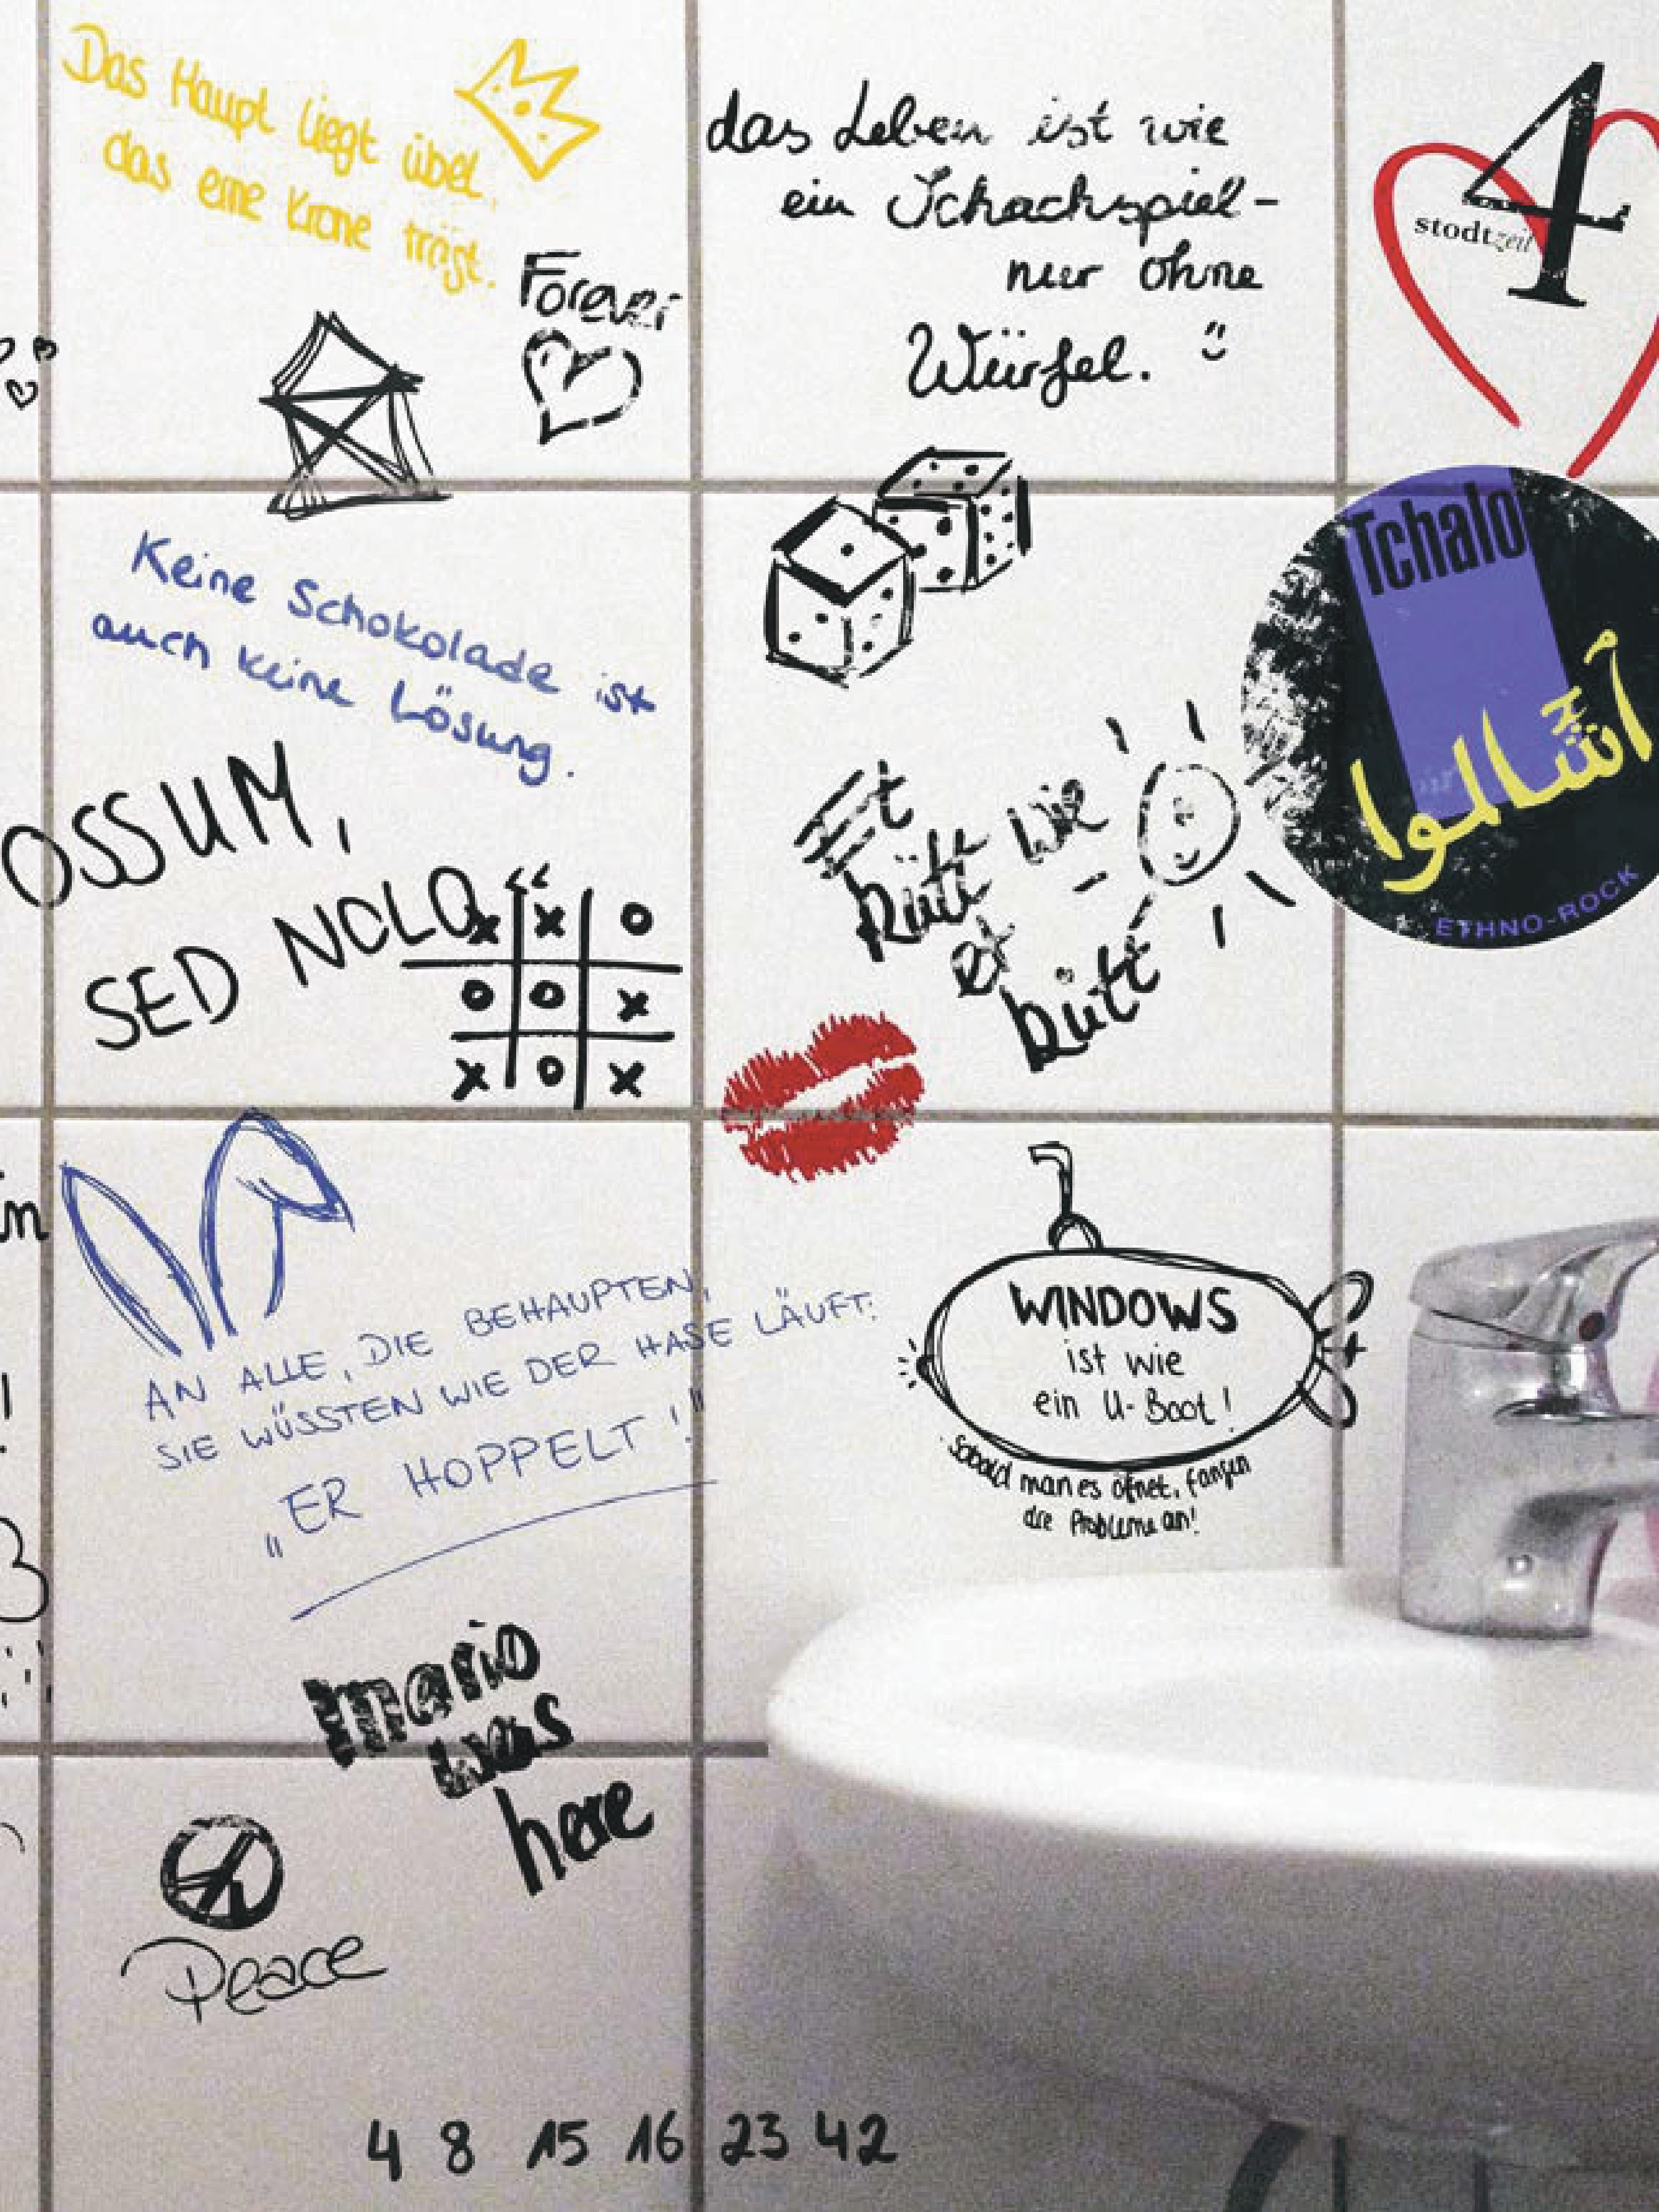 Das Haupt liegt übel,
das eine Krone trägt.
Forever
das Leben ist wie
ein Schachspiel-
nur ohne
Würfel.
4
stadtzeit
Keine Schokolade ist
auch keine Lösung.
Tchalo
ETHNO-ROCK
OSSUM,
SED NOLO"
x x o
o o x
x o x
Et
kütt wie
et
kütt
AN ALLE, DIE BEHAUPTEN,
SIE WÜSSTEN WIE DER HASE LÄUFT:
„ER HOPPELT!"
WINDOWS
ist wie
ein U-Boot!
Sobald man es öfnet, fangen
die Probleme an!
mario
was
here
Peace
4 8 15 16 23 42